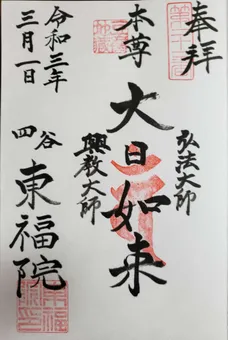 奉拝
本尊
大日如来
弘法大師
興教大師
令和三年
三月一日
四谷
東福院